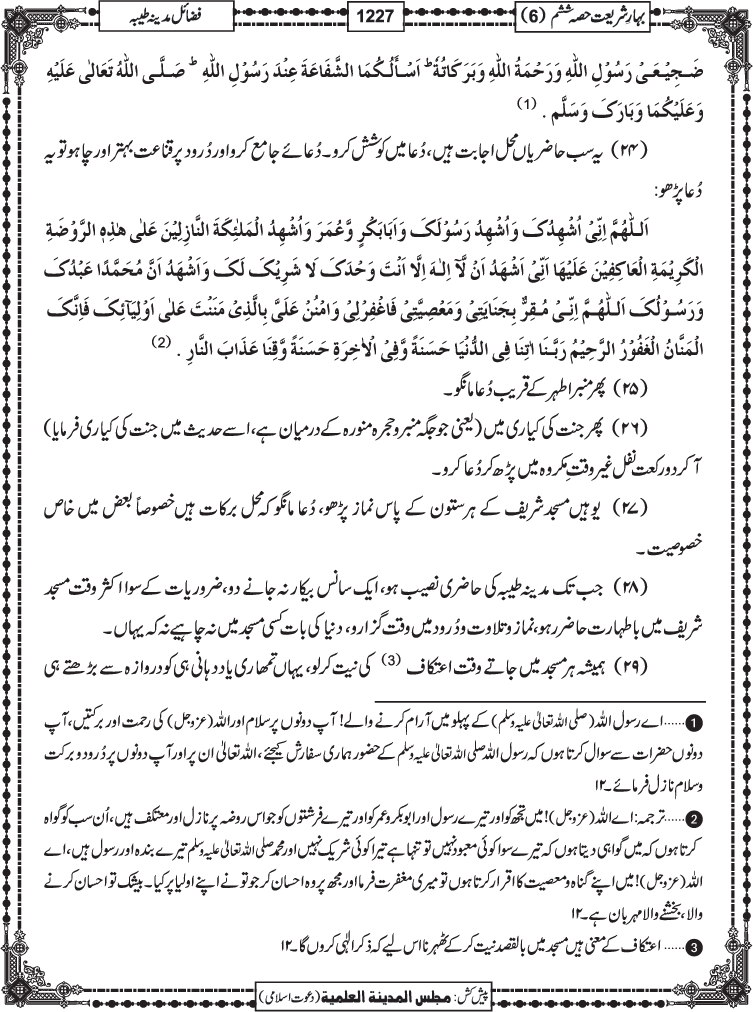 بہار شریعت حصہ ششم (6)
1227
فضائل مدینہ طیبہ
ضَجِیْعَیْ رَسُوْلِ اللهِ وَرَحْمَةُ اللهِ وَبَرَكَاتُهٗ ؕ اَسْأَلُكُمَا الشَّفَاعَةَ عِنْدَ رَسُوْلِ اللهِ ؕ صَلَّی اللهُ تَعَالٰی عَلَیْهِ
وَعَلَیْكُمَا وَبَارَكَ وَسَلَّم . (1)
(۲۴) یہ سب حاضریاں محل اجابت ہیں، دُعا میں کوشش کرو۔ دُعائے جامع کرو اور دُرود پر قناعت بہتر اور چاہو تو یہ
دُعا پڑھو:
اَللّٰهُمَّ اِنِّیْ اُشْهِدُكَ وَاُشْهِدُ رَسُوْلَكَ وَاَبَابَكْرٍ وَّعُمَرَ وَاُشْهِدُ الْمَلٰئِكَةَ النَّازِلِیْنَ عَلٰی هٰذِهِ الرَّوْضَةِ
الْكَرِیْمَةِ الْعَاكِفِیْنَ عَلَیْهَا اَنِّیْ اَشْهَدُ اَنْ لَّآ اِلٰهَ اِلَّا اَنْتَ وَحْدَكَ لَا شَرِیْكَ لَكَ وَاَشْهَدُ اَنَّ مُحَمَّدًا عَبْدُكَ
وَرَسُوْلُكَ اَللّٰهُمَّ اِنِّیْ مُقِرٌّ بِجِنَایَتِیْ وَمَعْصِیَتِیْ فَاغْفِرْلِیْ وَامْنُنْ عَلَیَّ بِالَّذِیْ مَنَنْتَ عَلٰی اَوْلِیَآئِكَ فَاِنَّكَ
الْمَنَّانُ الْغَفُوْرُ الرَّحِیْمُ رَبَّنَا اٰتِنَا فِی الدُّنْیَا حَسَنَةً وَّفِی الْاٰخِرَةِ حَسَنَةً وَّقِنَا عَذَابَ النَّارِ . (2)
(۲۵) پھر منبر اطہر کے قریب دُعا مانگو۔
(۲۶) پھر جنت کی کیاری میں (یعنی جو جگہ منبر و حجرہ منورہ کے درمیان ہے، اسے حدیث میں جنت کی کیاری فرمایا)
آ کر دو رکعت نفل غیر وقتِ مکروہ میں پڑھ کر دُعا کرو۔
(۲۷) یوہیں مسجد شریف کے ہر ستون کے پاس نماز پڑھو، دُعا مانگو کہ محل برکات ہیں خصوصاً بعض میں خاص
خصوصیت۔
(۲۸) جب تک مدینہ طیبہ کی حاضری نصیب ہو، ایک سانس بیکار نہ جانے دو، ضروریات کے سوا اکثر وقت مسجد
شریف میں باطہارت حاضر رہو، نماز و تلاوت و دُرود میں وقت گزارو، دنیا کی بات کسی مسجد میں نہ چاہیے نہ کہ یہاں۔
(۲۹) ہمیشہ ہر مسجد میں جاتے وقت اعتکاف (3) کی نیت کر لو، یہاں تمھاری یاد دہانی ہی کو دروازہ سے بڑھتے ہی
1 ......اے رسول اللہ (صلی اللہ تعالیٰ علیہ وسلم) کے پہلو میں آرام کرنے والے! آپ دونوں پر سلام اور اللہ (عزوجل) کی رحمت اور برکتیں، آپ
دونوں حضرات سے سوال کرتا ہوں کہ رسول اللہ صلی اللہ تعالیٰ علیہ وسلم کے حضور ہماری سفارش کیجئے، اللہ تعالیٰ ان پر اور آپ دونوں پر دُرود و برکت
وسلام نازل فرمائے۔ ۱۲
2 ......ترجمہ: اے اللہ (عزوجل)! میں تجھ کو اور تیرے رسول اور ابوبکر و عمر کو اور تیرے فرشتوں کو جو اس روضہ پر نازل اور معتکف ہیں، اُن سب کو گواہ
کرتا ہوں کہ میں گواہی دیتا ہوں کہ تیرے سوا کوئی معبود نہیں تو تنہا ہے تیرا کوئی شریک نہیں اور محمد صلی اللہ تعالیٰ علیہ وسلم تیرے بندہ اور رسول ہیں، اے
اللہ (عزوجل)! میں اپنے گناہ و معصیت کا اقرار کرتا ہوں تو میری مغفرت فرما اور مجھ پر وہ احسان کر جو تو نے اپنے اولیا پر کیا۔ بیشک تو احسان کرنے
والا، بخشنے والا مہربان ہے۔ ۱۲
3 ...... اعتکاف کے معنی ہیں مسجد میں بالقصد نیت کر کے ٹھہرنا اس لیے کہ ذکر الٰہی کروں گا۔ ۱۲
پیش کش: مجلس المدینة العلمیة (دعوت اسلامی)